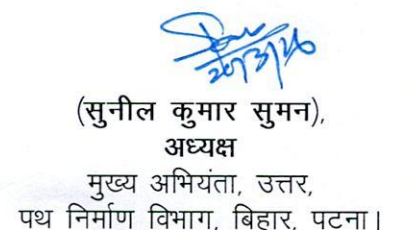 20/3/26
(सुनील कुमार सुमन),
अध्यक्ष
मुख्य अभियंता, उत्तर,
पथ निर्माण विभाग, बिहार, पटना।